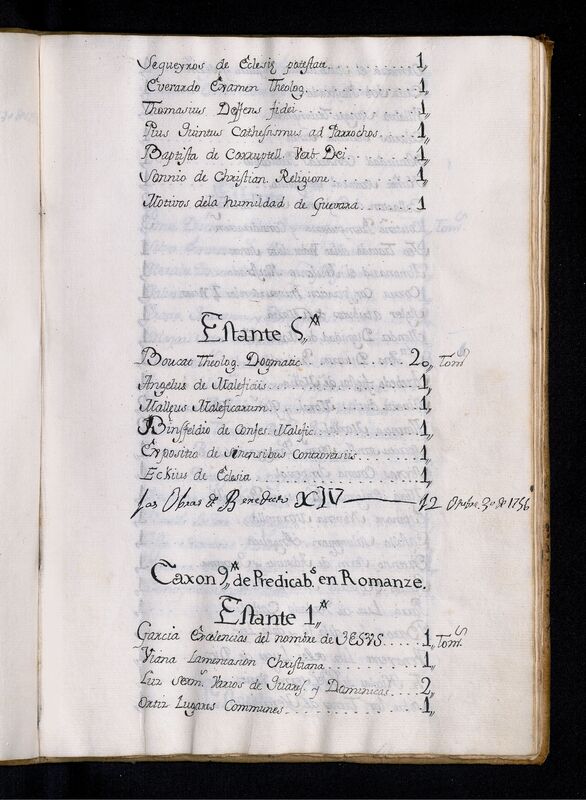 Segueyros de Eclesiz potestate 1,,
Everardo Examen Theolog. 1,,
Thomasius Deffens fidei. 1,,
Pius Quintus Cathesismus ad Parrochos. 1,,
Baptista de Corruptell. Verb. Dei. 1,,
Sonnio de Christian. Religione 1,,
Motivos dela humildad de Guevara. 1,,
Estante 5,,ª
Boucat Theolog. Dogmatic. 20,, Tomˢ
Angelus de Maleficiis 1,,
Malleus Maleficarum 1,,
Binsfeldio de Confes. Malefic. 1,,
Expositio de controversiis 1,,
Eckius de Eclesia 1,,
Las Obras de Benedicto XIV 12 Otubre 30 de 1756
Caxon 9,,ª de Predicabˢ en Romanze.
Estante 1,,ª
Garcia Excelencias del nombre de JESVS 1,, Tomˢ
Viana Lamentasion Christiana 1,,
Luz Sermˢ Varios de Quares. y Dominicas 2,,
Ortiz Lugares Communes 1,,